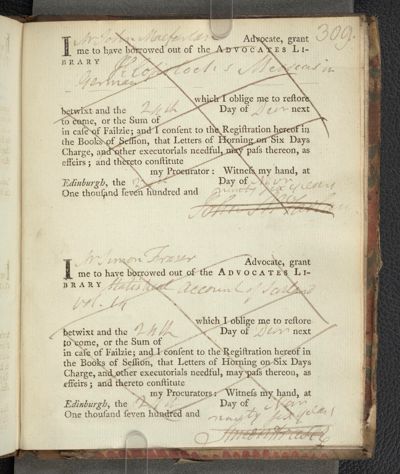 309.
I Mr John Macfarlan Advocate, grant
me to have borrowed out of the ADVOCATES LI-
BRARY Klopstock's Messias in
German
which I oblige me to reſtore
betwixt and the 24th Day of Decr next
to come, or the Sum of
in caſe of Failzie; and I conſent to the Regiſtration hereof in
the Books of Seſſion, that Letters of Horning on Six Days
Charge, and other executorials needful, may paſs thereon, as
effeirs; and thereto conſtitute
my Procurator: Witneſs my hand, at
Edinburgh, the Day of Novr
One thouſand ſeven hundred and ninety six years
John
I Mr Simon Fraser Advocate, grant
me to have borrowed out of the ADVOCATES LI-
BRARY Statistical Account of Scotland
vol. 14
which I oblige me to reſtore
betwixt and the 24th Day of Decr next
to come, or the Sum of
in caſe of Failzie; and I conſent to the Regiſtration hereof in
the Books of Seſſion, that Letters of Horning on Six Days
Charge, and other executorials needful, may paſs thereon, as
effeirs; and thereto conſtitute
my Procurators: Witneſs my hand, at
Edinburgh, the Day of Novr
One thouſand ſeven hundred and ninety six years
Simon Fraser